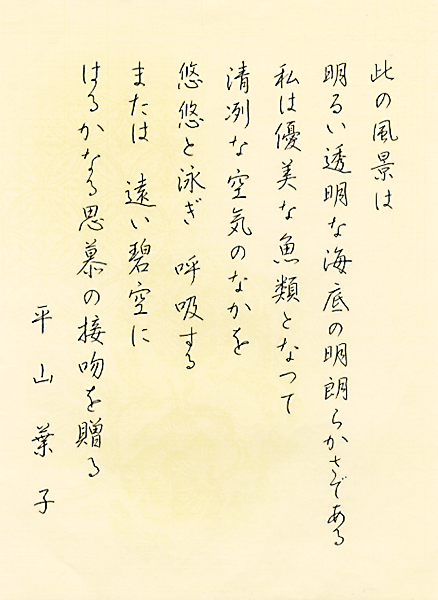 此の風景は
明るい透明な海底の明朗らかさである
私は優美な魚類となつて
清冽な空気のなかを
悠悠と泳ぎ　呼吸する
または　遠い碧空に
はるかなる思慕の接吻を贈る
平山葉子